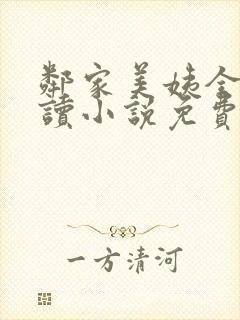 鄰家美姨全
讀小說免費
一方清河